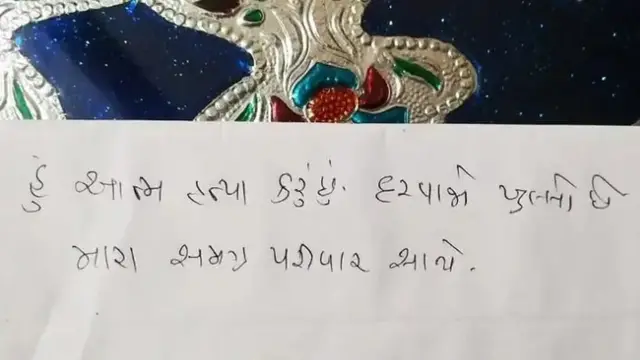 હું આત્મ હત્યા કરું છું. દરવાજો ખુલ્લો છે
મારા સમગ્ર પરીવાર સાથે.